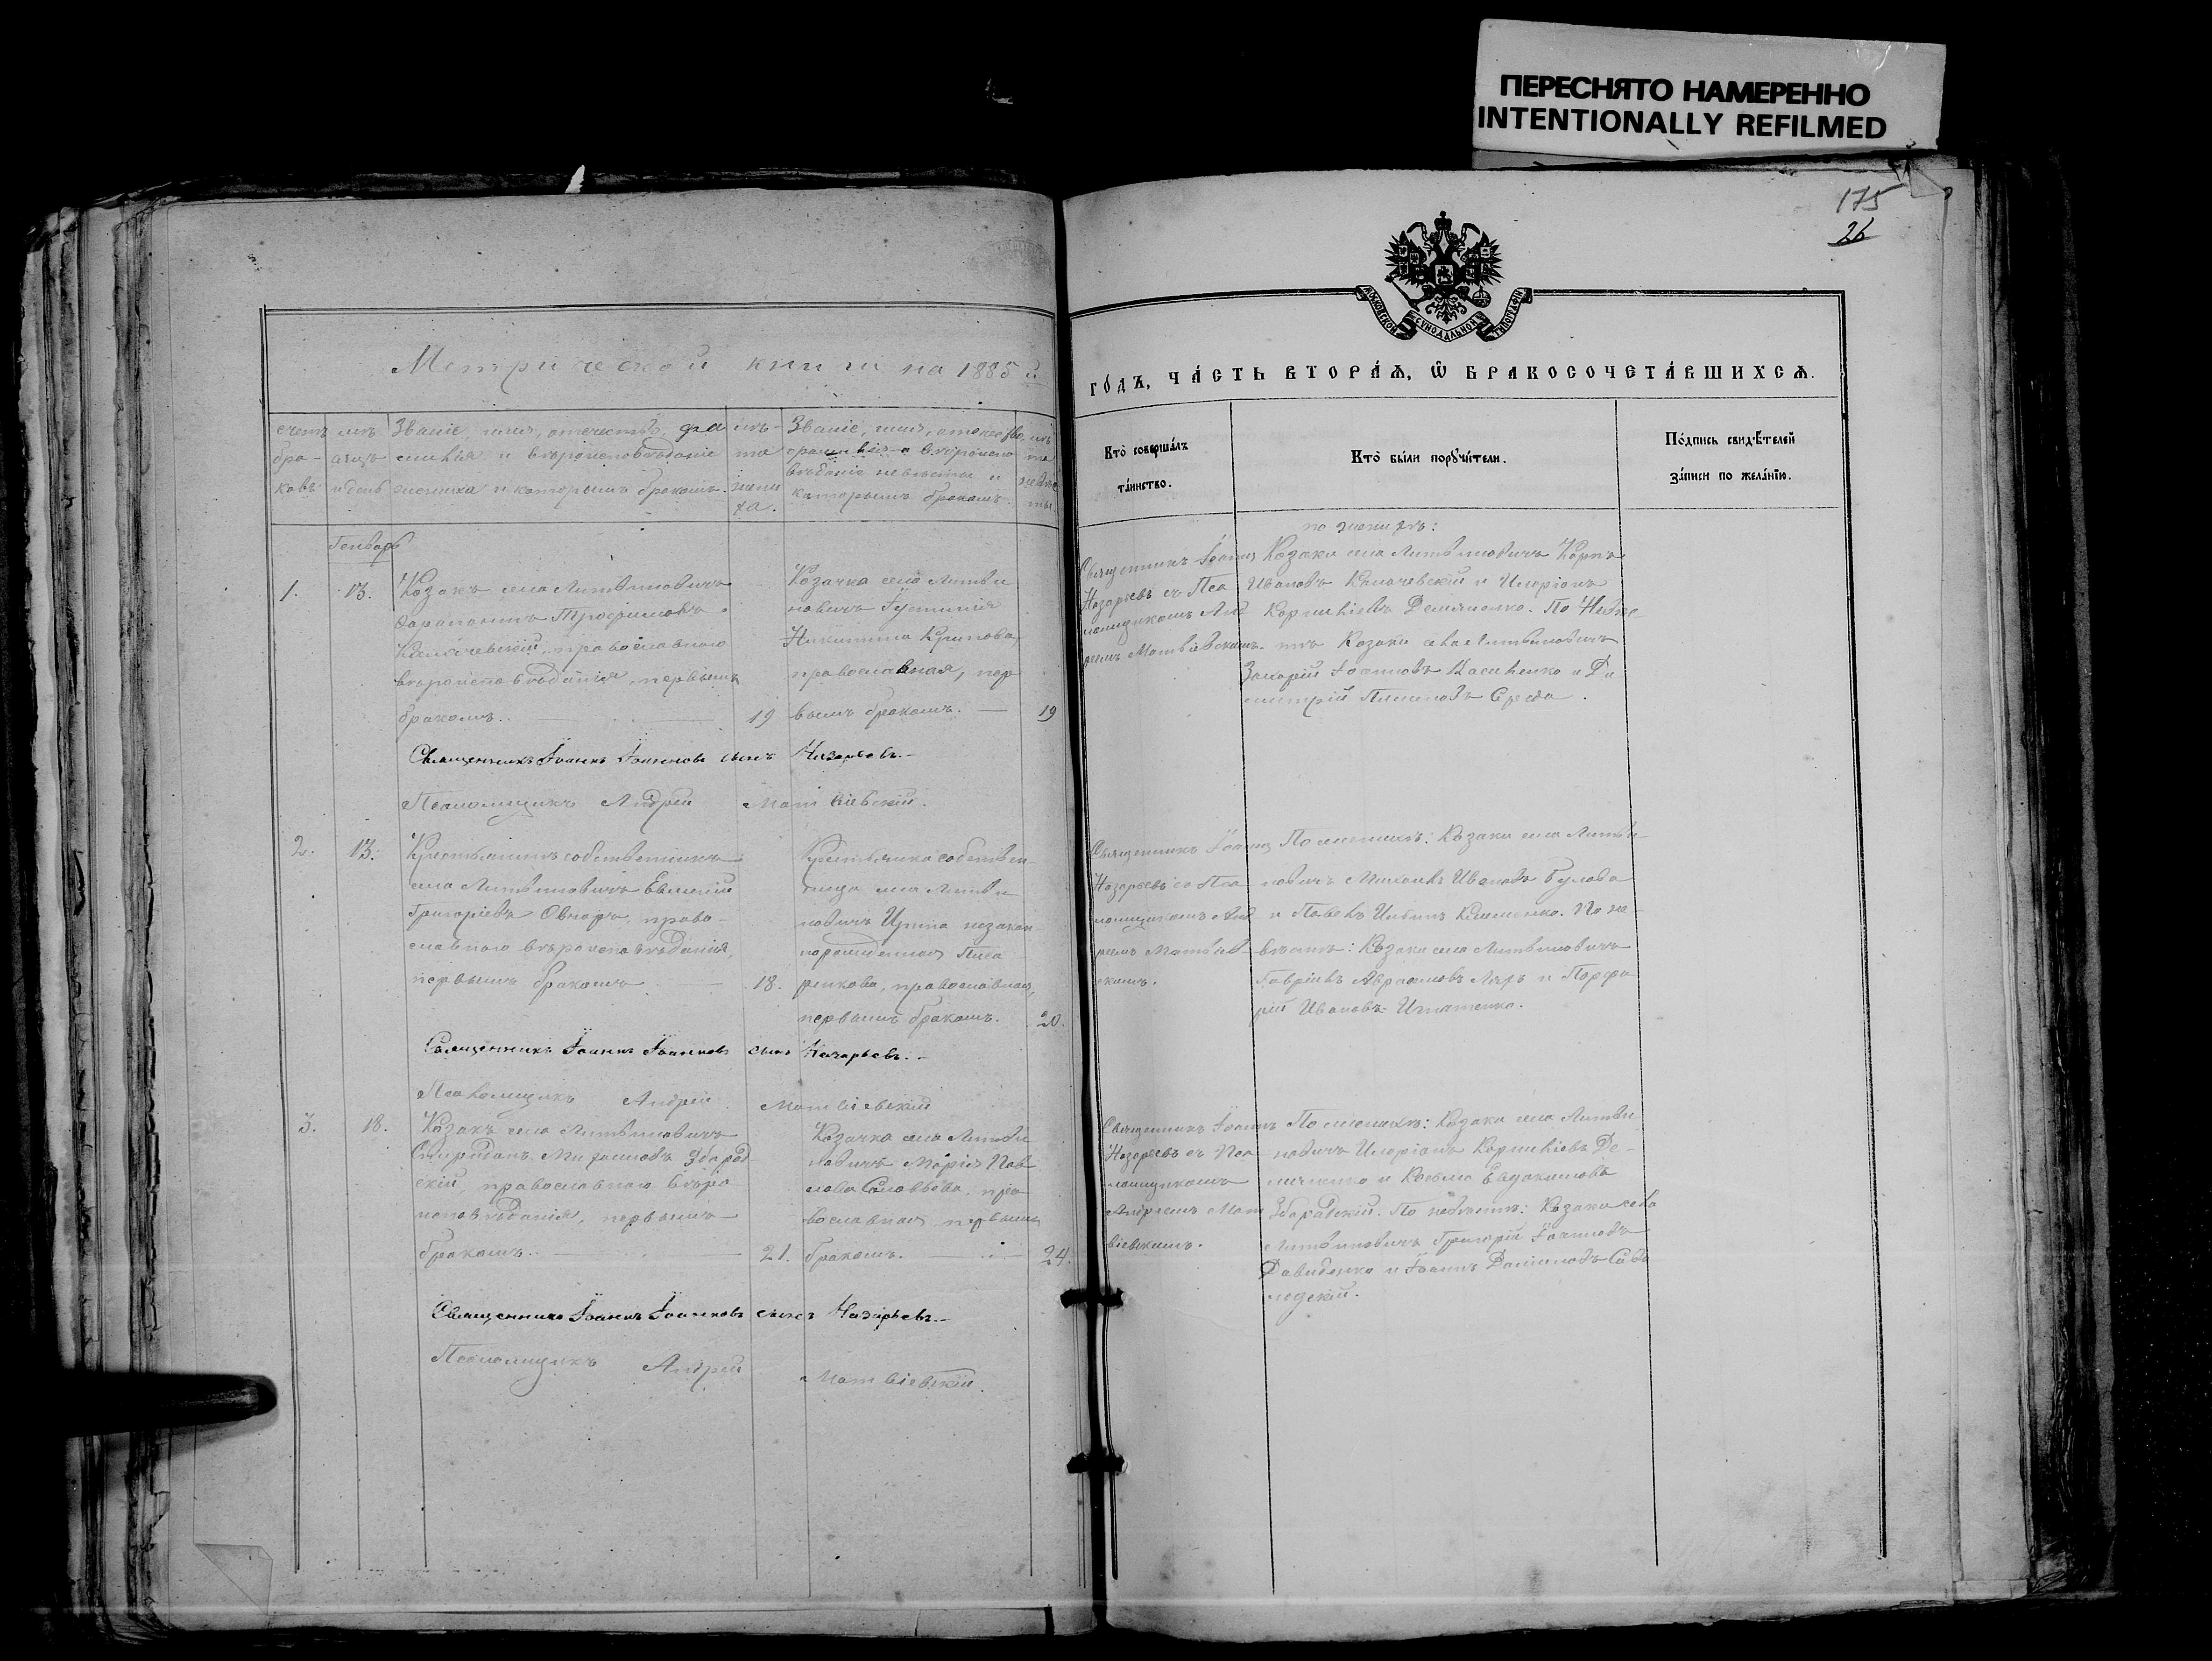 ПЕРЕСНЯТО НАМЕРЕННО
INTENTIONALLY REFILMED
175
26
МОСКОВСКОЙ СѴНОДАЛЬНОЙ ТИПОГРАФІИ
Метрической книги на 1885 й
го́дъ, ча́сть втора́ѧ, ѽ бракосочета́вшихсѧ.
счетъ
бра-
ковъ
мѣ
сяцъ
и день
Званіе, имя, отечество, фа
милія и вѣроисповѣданіе
жениха и которымъ бракомъ.
лѣ-
та
жени
ха.
Званіе, имя, отечество,
фамилія и вѣроиспо
вѣданіе невѣсты и
которымъ бракомъ.
лѣ
та
невѣс
ты
Кто̀ соверша́лъ
та́инство.
Кто̀ бы́ли порꙋчи́тели.
По́дпись свидѣ́телей
за́писи по жела́нїю.
Генварь
1.
13.
Козакъ села Литвиновичъ
Трофимовъ
Калачевскій, православнаго
вѣроисповѣданія, первымъ
бракомъ.
19
Козачка села Литви
новичъ Іустинія
Никитина Крипова,
православная, пер
вымъ бракомъ.
19
Священникъ Іоаннъ
Назарьевъ съ Пса
ломщикомъ Анд
реемъ Матвіевскимъ.
по женихѣ:
Козаки села Литвиновичъ Карпъ
Ивановъ Калачевскій и Иларіонъ
Корнилієвъ Демченко. По Невѣс-
тѣ Козаки села Литвиновичъ
Захарій Іоанновъ Василенко и Ди
митрій Середа.
Священникъ Іоаннъ Іоанновъ сынъ Назарьевъ.
Псаломщикъ Андрей Матвіевскій.
2.
13.
Крестьянинъ собственникъ
села Литвиновичъ Евменій
Григоріевъ Овчаръ, право-
славнаго вѣроисповѣданія,
первымъ бракомъ
18.
Крестьянка собствен
ница села Литви
новичъ Ирина незакон
норожденная Писа
ренкова, православная,
первымъ бракомъ.
20.
Священникъ Іоаннъ
Назарьевъ со Пса
ломщикомъ Анд
реемъ Матвіев
скимъ.
По женихѣ: Козаки села Литви-
новичъ Михаилъ Ивановъ Булава
и Павелъ Ильинъ Клименко. По не-
вѣстѣ: Козаки села Литвиновичъ
Гавріилъ Аврамовъ и Порфи
рій Ивановъ Игнатенко.
Священникъ Іоаннъ Іоанновъ сынъ Назарьевъ.
Псаломщикъ Андрей Матвіевскій
3.
18.
Козакъ села Литвиновичъ
Спиридонъ Михаиловъ Збарад
скій православнаго вѣро
исповѣданія, первымъ
бракомъ.
21.
Козачка села Литви
новичъ Марія Пав
лова Соловьева, пра
вославная первымъ
бракомъ.
24.
Священникъ Іоаннъ
Назарьевъ съ Пса
ломщикомъ
Андреемъ Мат
віевскимъ.
По женихѣ: Козаки села Литви
новичъ Иларіонъ Корнилієвъ Де-
мченко и Козьма Евдокимовъ
Збарадскій. По невѣстѣ: Козаки села
Литвиновичъ Григорій Іоанновъ
Давиденко и Іоаннъ
Священникъ Іоаннъ Іоанновъ сынъ Назарьевъ.
Псаломщикъ Андрей Матвіевскій.